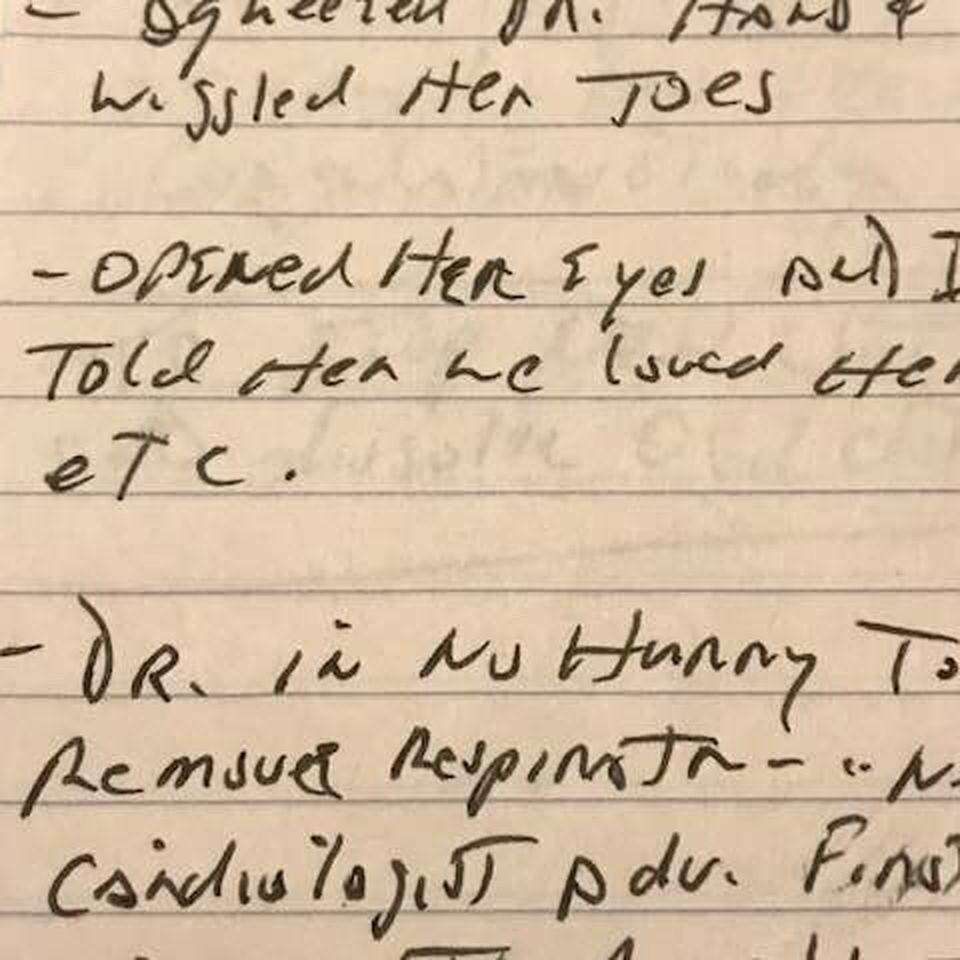 - Squeezed Dr. Hand &
Wiggled Her Toes
- Opened Her Eyes and I
Told Her we loved Her
eTc.
- DR. in No Hurry To
Remove Respirator - "N
Cardiologist adv. First